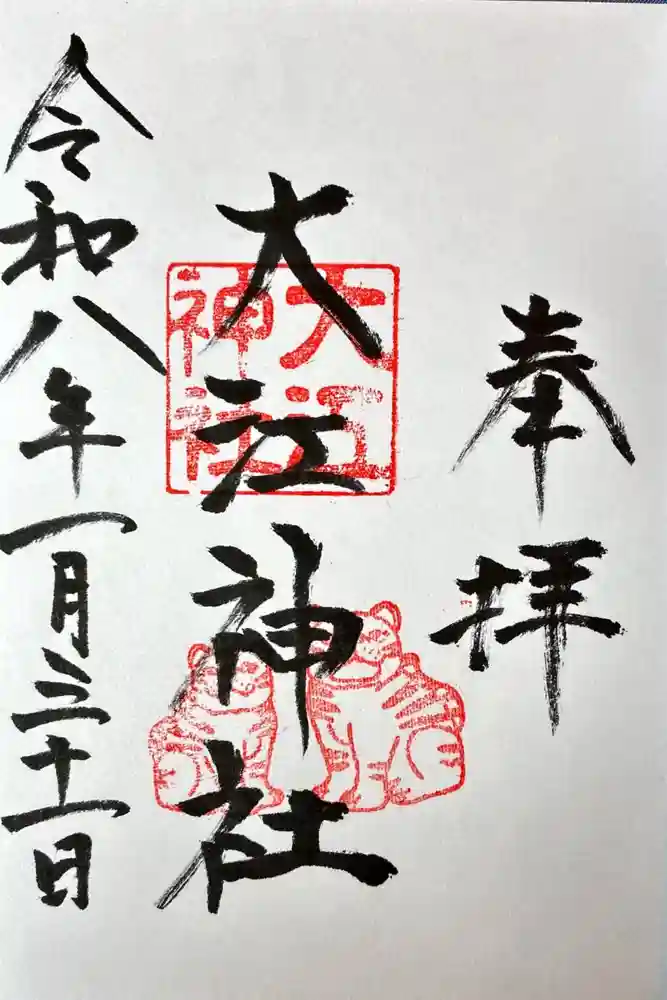 奉拝
大江神社
大江神社
令和八年一月三十一日